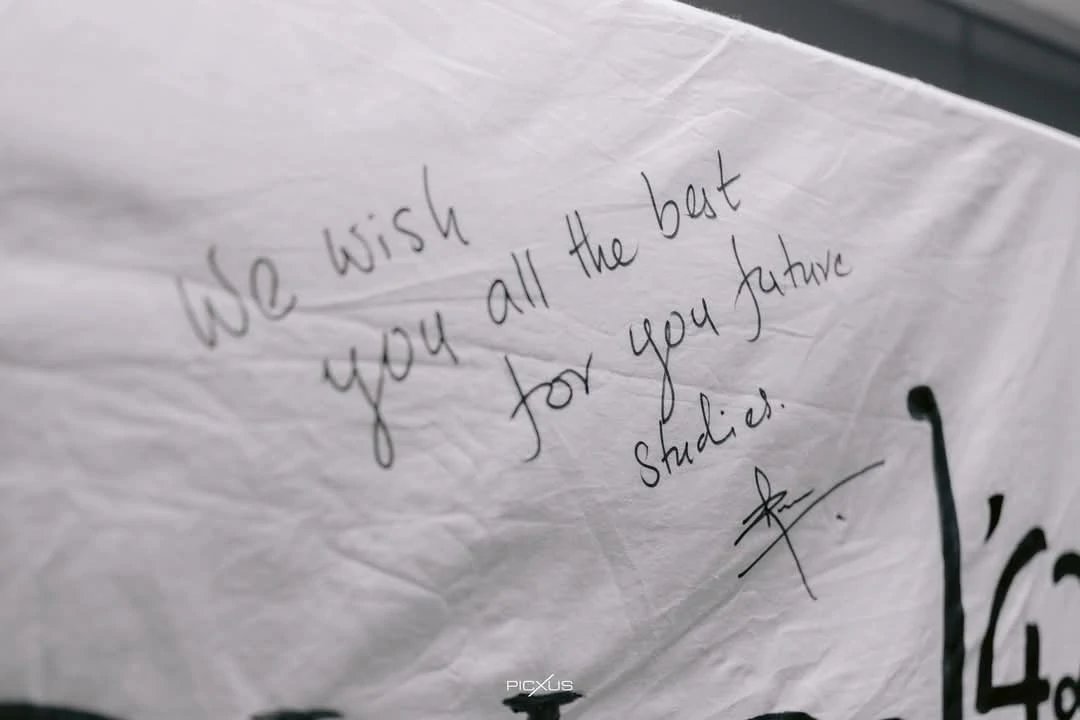 We wish
you all the best
for you future
studies.
PICXUS